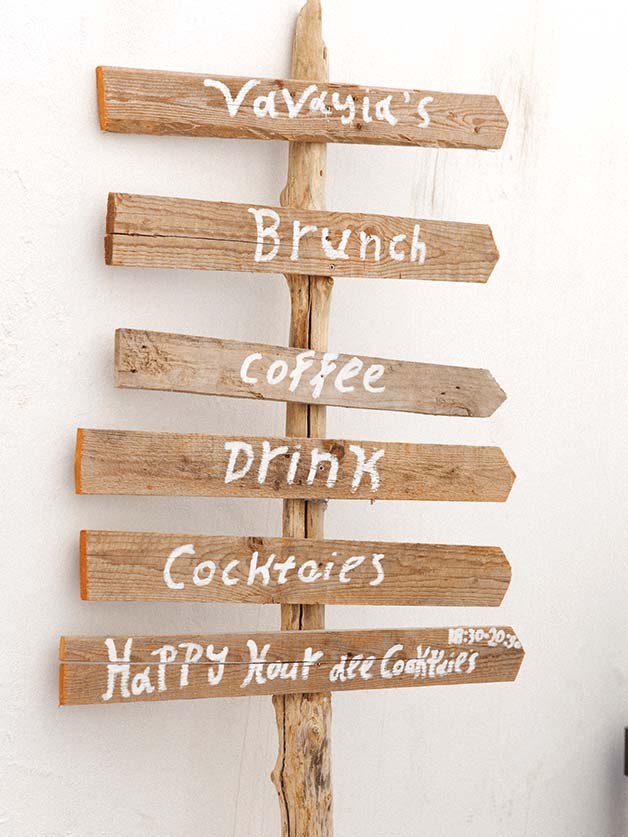 Vavayia's
Brunch
coffee
Drink
Cocktaies
18:30-20:30
HaPPY Hour all Cocktaies